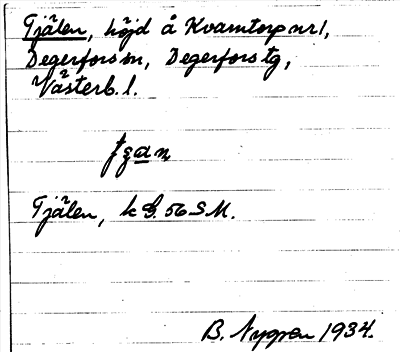 Tjälen, höjd å Kvarntorp nr 1,
Degerfors sn, Degerfors tg,
Västerb. l.
Tjälen, k G. 56 S M.
B. Nygren 1934.